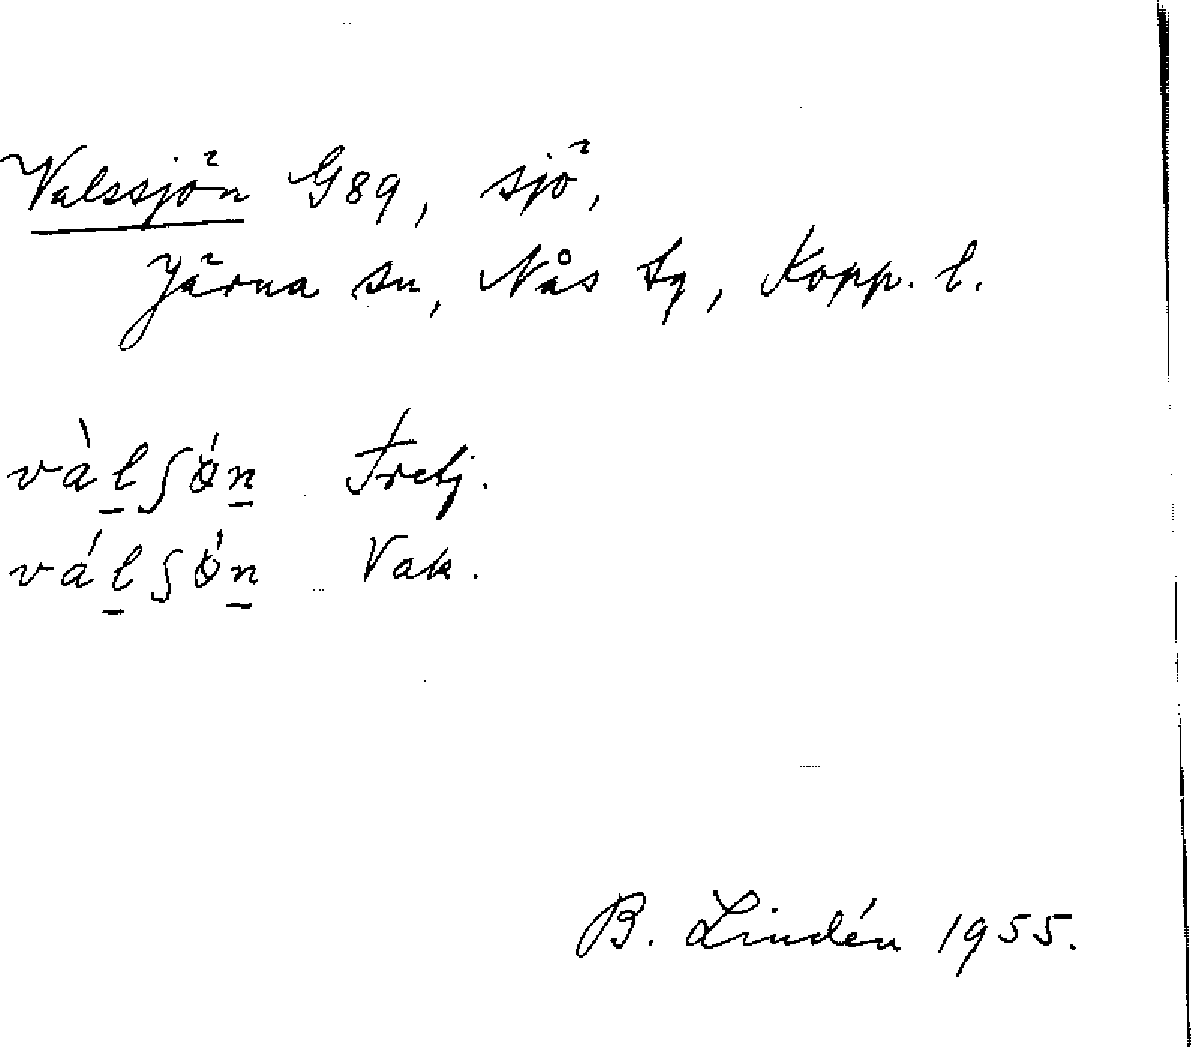 Valssjön G89, sjö,
Järna sn, Nås tg, Kopp. l.
vàl̲ʃǿn̲ Fretj.
vál̲ʃǿn̲ Vak.
B. Lindén 1955.